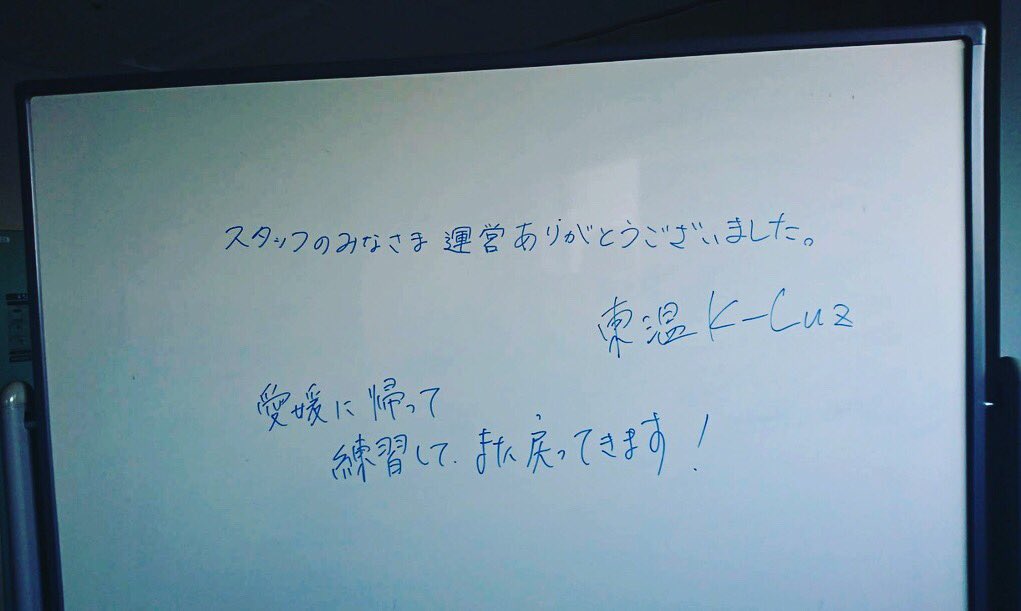 スタッフのみなさま 運営ありがとうございました。
東温 K-Cuz
愛媛に帰って
練習して、また戻ってきます!